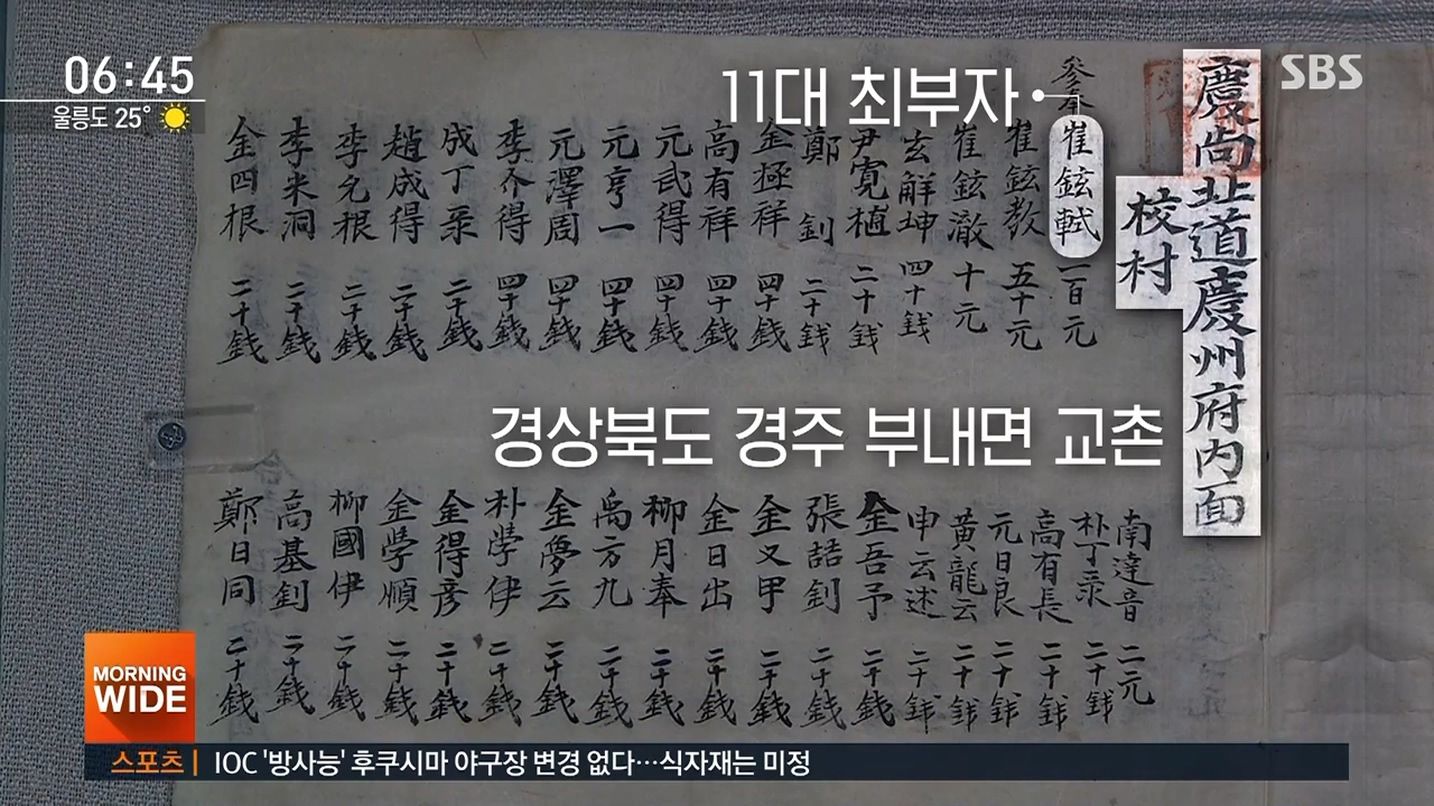 06:45
울릉도 25°
SBS
11대 최부자
경상북도 경주 부내면 교촌
慶尙北道慶州府內面
校村
參奉 崔鉉軾 一百元
崔鉉敎 五十元
崔鉉澈 十元
玄解坤 四十錢
尹寬植 二十錢
鄭 釗 二十錢
金極祥 四十錢
高有祥 四十錢
元武得 四十錢
元亨一 四十錢
元澤周 四十錢
李介得 四十錢
成丁彔 二十錢
趙成得 二十錢
李允根 二十錢
李米洞 二十錢
金四根 二十錢
南達音 二元
朴丁彔 二十錢
高有長 二十錢
元日良 二十錢
黃龍云 二十錢
申云述 二十錢
金吾予 二十錢
張喆釗 二十錢
金又甲 二十錢
金日出 二十錢
柳月奉 二十錢
禹方九 二十錢
金夢云 二十錢
朴學伊 二十錢
金得彦 二十錢
金學順 二十錢
柳國伊 二十錢
高基釗 二十錢
鄭日同 二十錢
MORNING
WIDE
스포츠 | IOC '방사능' 후쿠시마 야구장 변경 없다…식자재는 미정